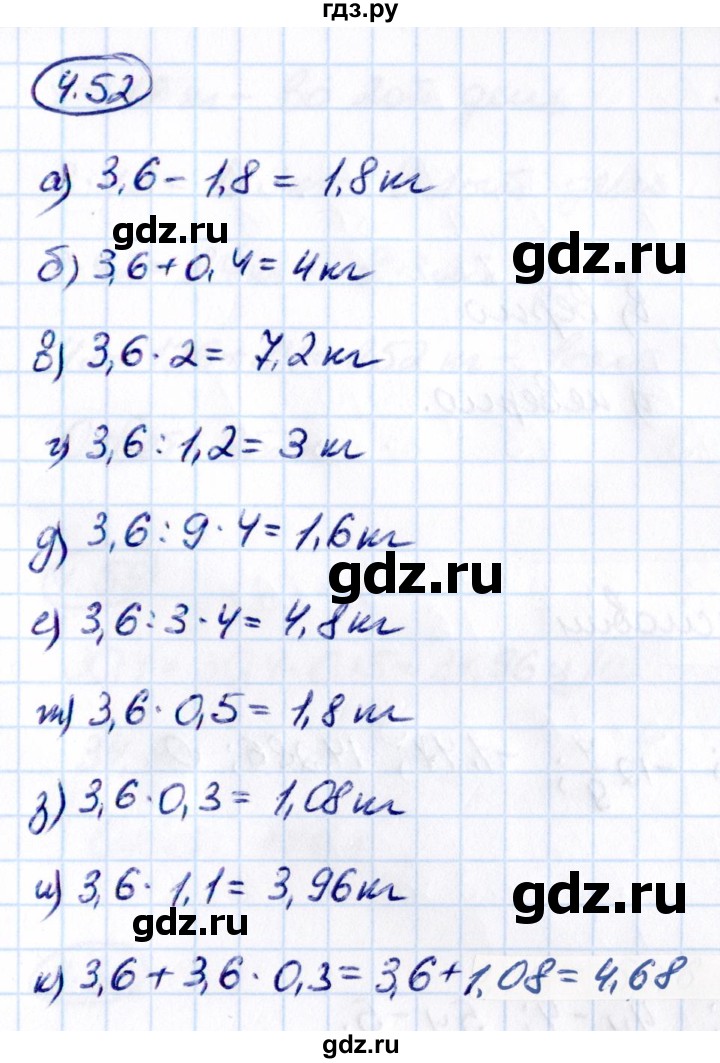 гдз.ру
4.52
а) 3,6 - 1,8 = 1,8 кг
gdz.ru
gdz.ru
б) 3,6 + 0,4 = 4 кг
в) 3,6 · 2 = 7,2 кг
г) 3,6 : 1,2 = 3 кг
д) 3,6 : 9 · 4 = 1,6 кг
gdz.ru
е) 3,6 : 3 · 4 = 4,8 кг
ж) 3,6 · 0,5 = 1,8 кг
з) 3,6 · 0,3 = 1,08 кг
и) 3,6 · 1,1 = 3,96 кг
gdz.ru
gdz.ru
к) 3,6 + 3,6 · 0,3 = 3,6 + 1,08 = 4,68
gdz.ru